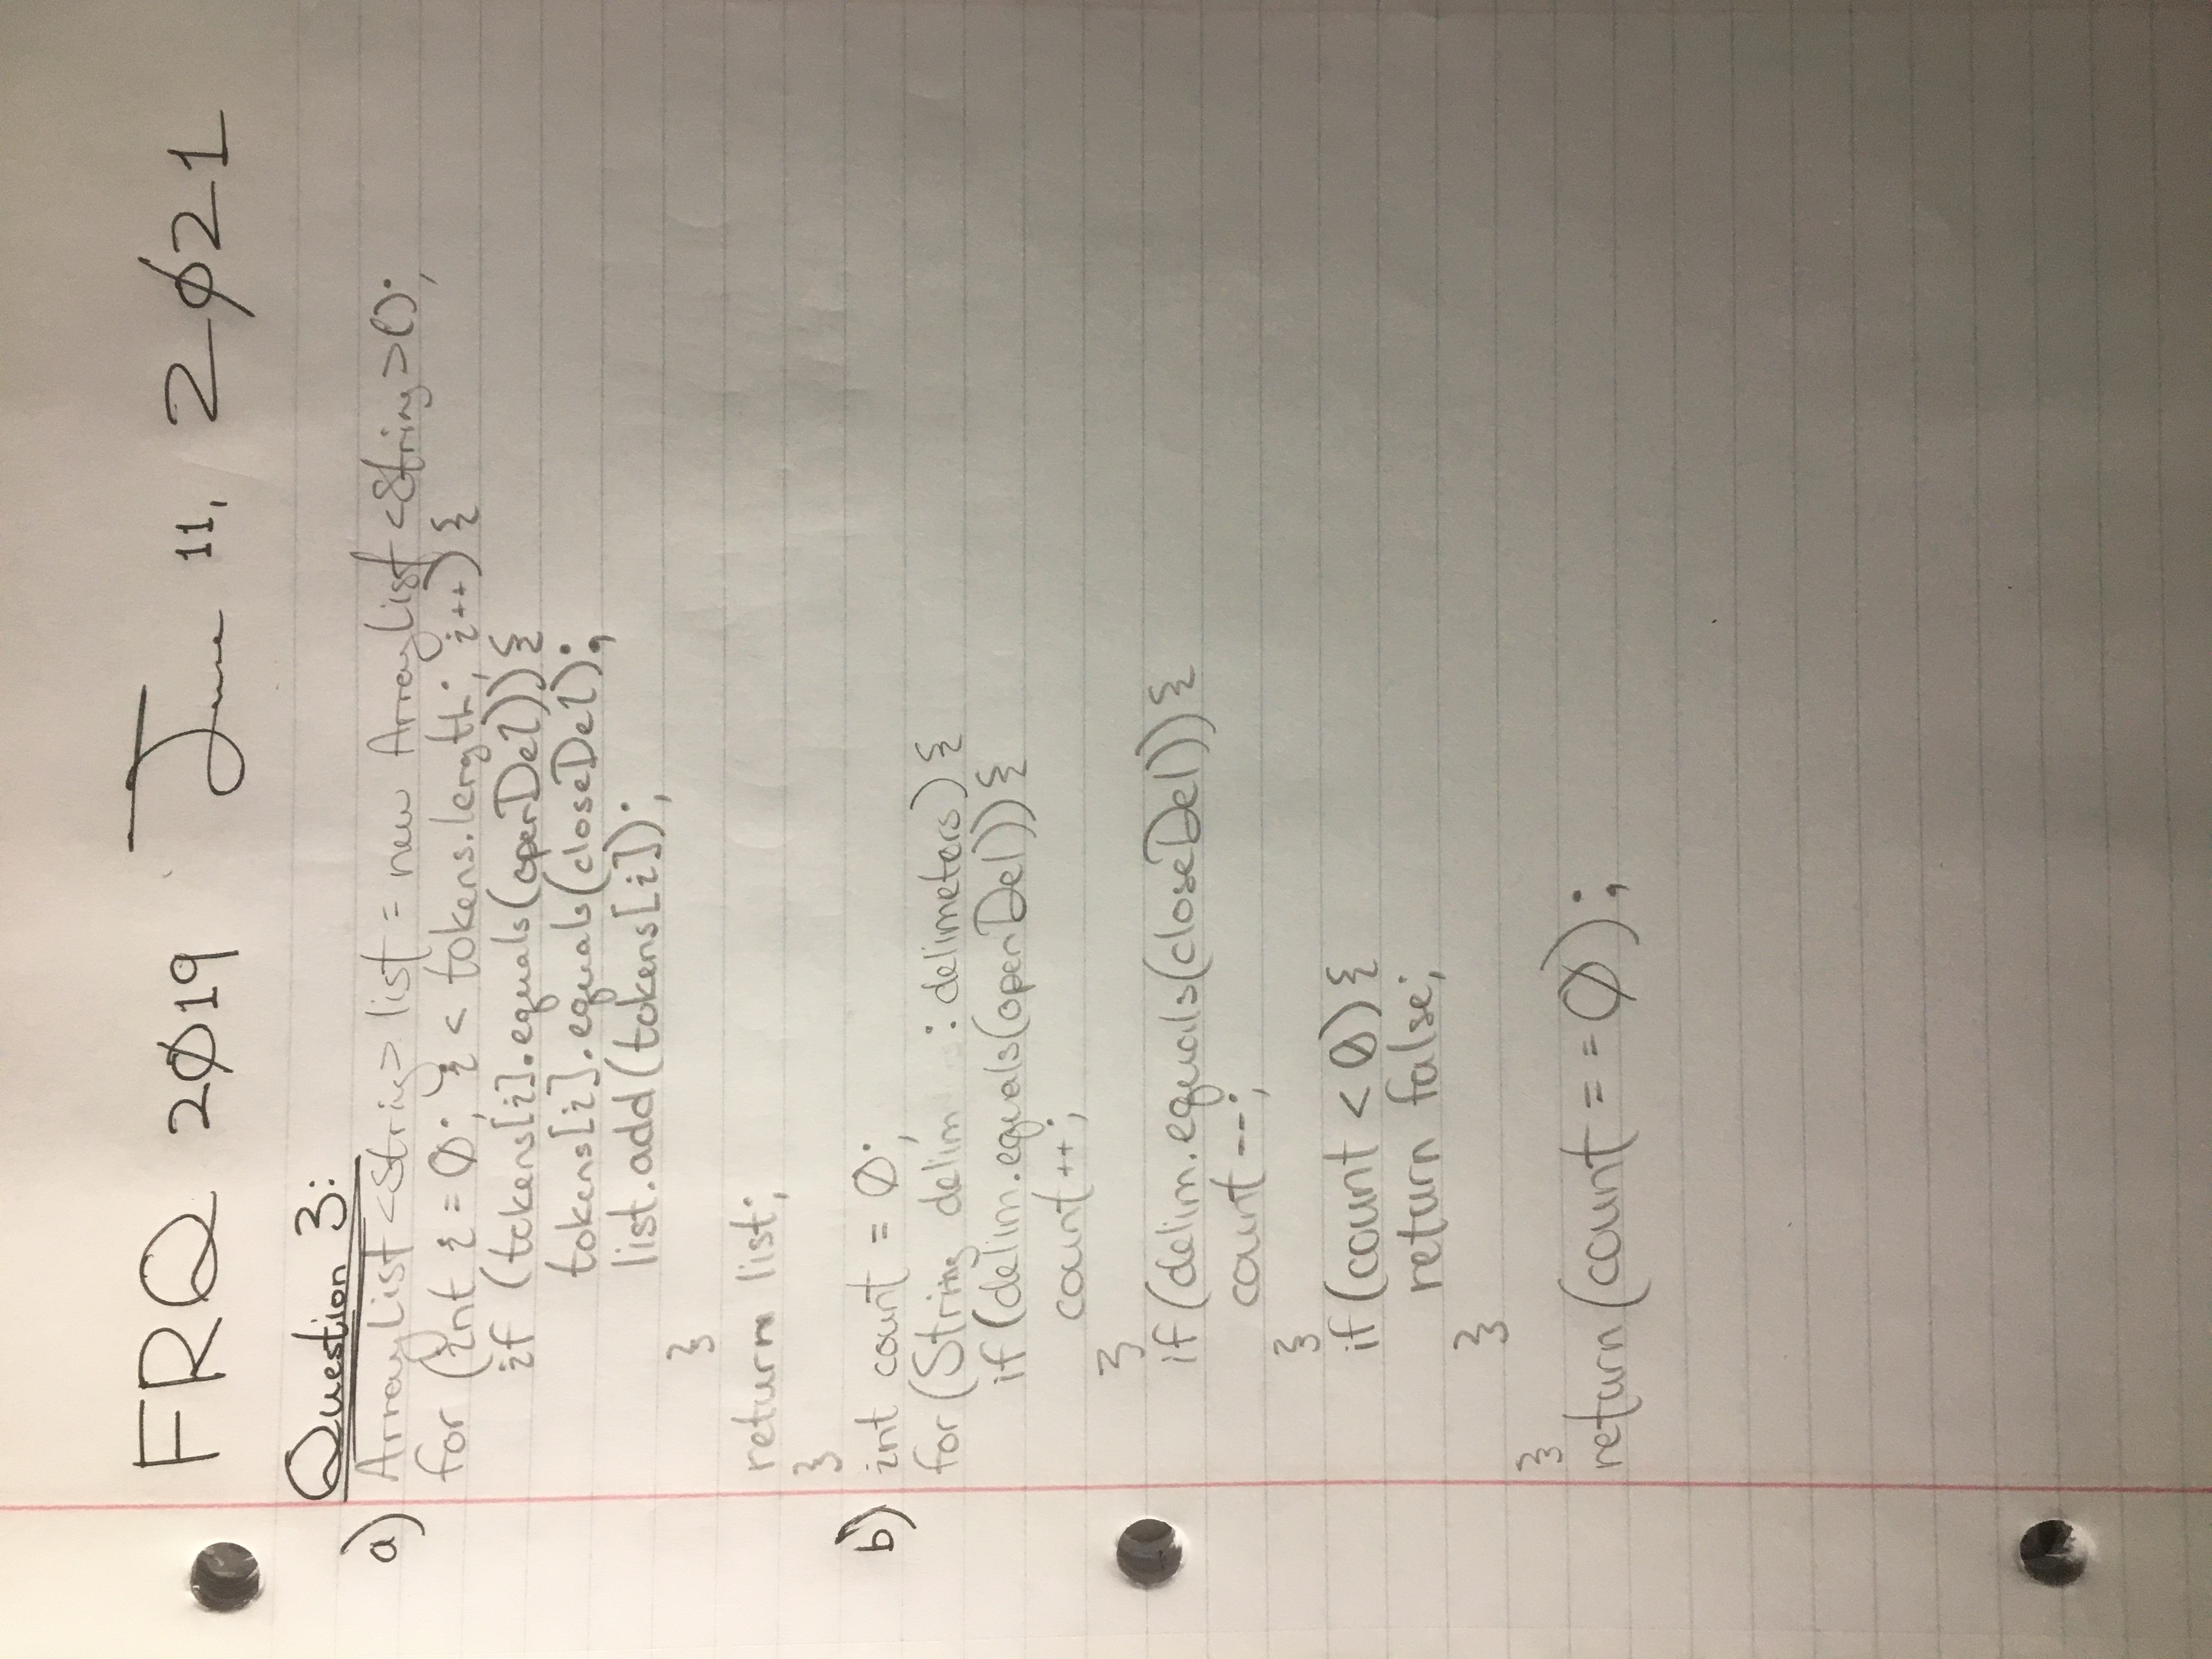 FRQ 2Ø19 June 11, 2Ø21
Question 3:
a) ArrayList<String> list = new ArrayList<String>();
for (int i = Ø; i < tokens.length; i++) {
if (tokens[i].equals(openDel)) {
tokens[i].equals(closeDel);
list.add(tokens[i]);
}
return list;
}
b) int count = Ø;
for (String delim : delimeters) {
if (delim.equals(openDel)) {
count++;
}
if (delim.equals(closeDel)) {
count--;
}
if (count < Ø) {
return false;
}
}
return (count == Ø);